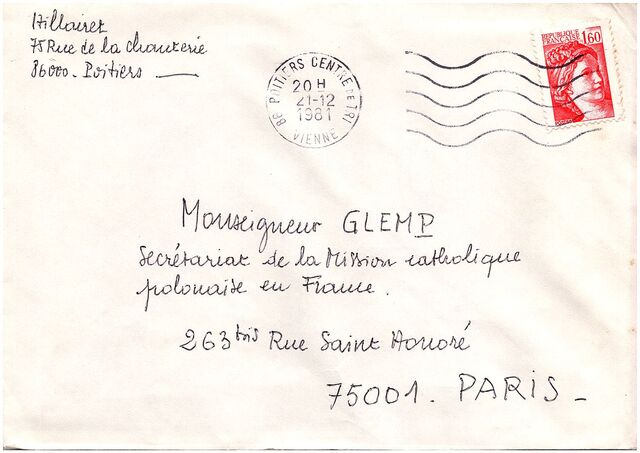 Hillairet
75 Rue de la Chanterie
86000. Poitiers
86 POITIERS CENTRE DE TRI
20 H
21-12
1981
VIENNE
REPUBLIQUE
FRANCAISE
1,60
Monseigneur GLEMP
Secrétariat de la Mission catholique
polonaise en France.
263 bis Rue Saint Honoré
75001. PARIS_